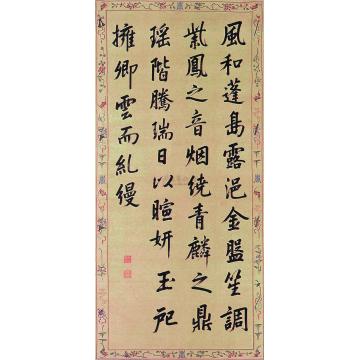 風和蓬島露浥金盤笙調
紫鳳之音烟繞青麟之鼎
瑶階騰瑞日以暄妍玉砌
擁卿雲而糺縵